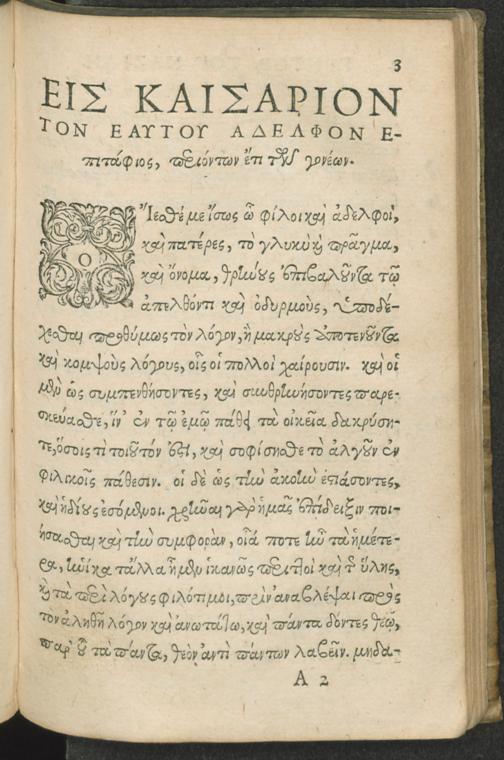 3
ΕΙΣ ΚΑΙΣΑΡΙΟΝ
ΤΟΝ ΕΑΥΤΟΥ ΑΔΕΛΦΟΝ Ε-
πιτάφιος, περιόντων ἔτι τῶν γονέων.
Ο Ἴεσθέ με ἴσως ὦ φίλοι καὶ ἀδελφοὶ,
καὶ πατέρες, τὸ γλυκὺ καὶ πρᾶγμα,
καὶ ὄνομα, θρήνους ἐπιβαλοῦντα τῷ
ἀπελθόντι καὶ ὀδυρμοὺς, ὑποδέ-
χεσθαι προθύμως τὸν λόγον, ἢ μακροὺς ἀποτενοῦντα
καὶ κομψοὺς λόγους, οἷς οἱ πολλοὶ χαίρουσιν. καὶ οἱ
μὲν ὡς συμπενθήσοντες, καὶ συνθρηνήσοντες παρε-
σκεύασθε, ἵν' ἐν τῷ ἐμῷ πάθει τὰ οἰκεῖα δακρύση-
τε, ὅσοις τὶ τοιοῦτόν ἐστι, καὶ σοφίσησθε τὸ ἀλγοῦν ἐν
φιλικοῖς πάθεσιν. οἱ δὲ ὡς τὴν ἀκοὴν ἑστιάσοντες,
καὶ ἡδίους ἐσόμενοι. χρῆναι γὰρ ἡμᾶς ἐπίδειξιν ποι-
ήσασθαι καὶ τὴν συμφορὰν, οἷά ποτε ἦν τὰ ἡμέτε-
ρα, ἡνίκα τἄλλα ἦμεν ἱκανῶς περιττοὶ καὶ τῆς ὕλης,
καὶ τὰ περὶ λόγους φιλότιμοι, πρὶν ἀναβλέψαι πρὸς
τὸν ἀληθῆ λόγον καὶ ἀνωτάτω, καὶ πάντα δόντες θεῷ,
παρ' οὗ τὰ πάντα, θεὸν ἀντὶ πάντων λαβεῖν. μηδα-
A 2